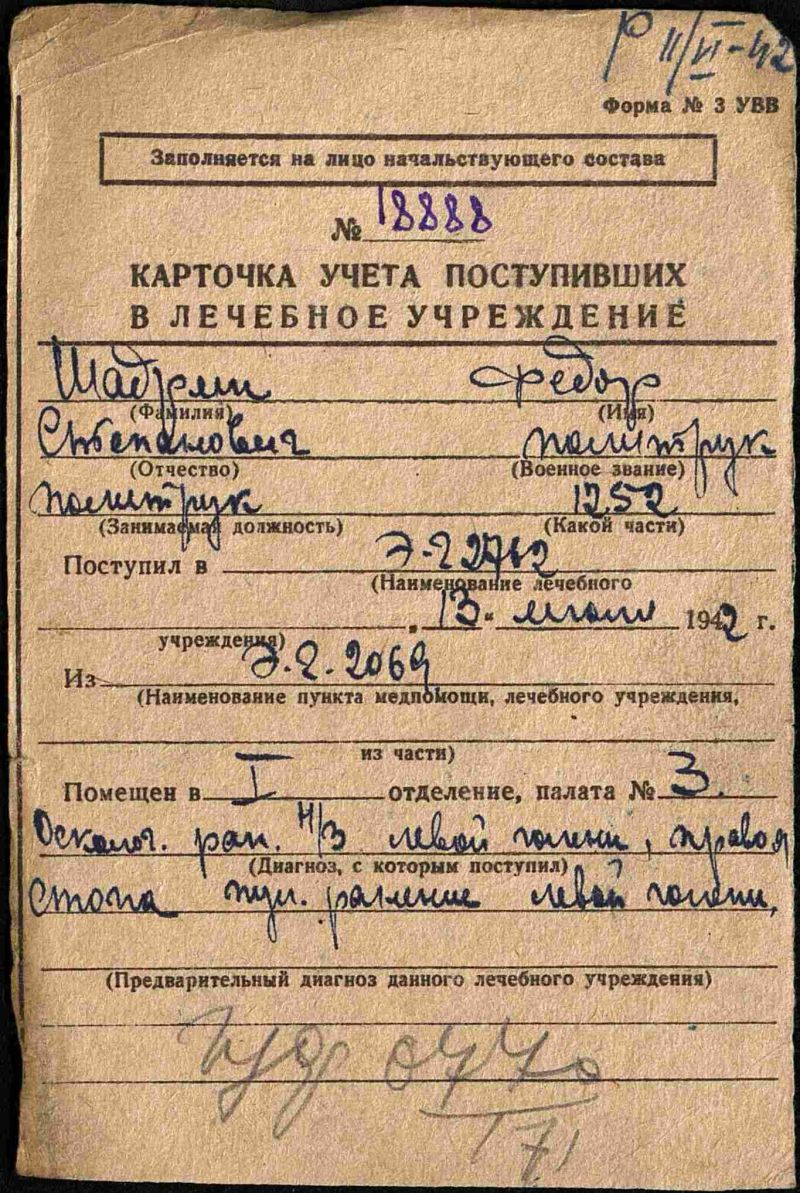 Р 11/VI-42
Форма № 3 УВВ
Заполняется на лицо начальствующего состава
№ 18888
КАРТОЧКА УЧЕТА ПОСТУПИВШИХ
В ЛЕЧЕБНОЕ УЧРЕЖДЕНИЕ
Шадрин Федор
(Фамилия) (Имя)
Степанович политрук
(Отчество) (Военное звание)
политрук 1252
(Занимаемая должность) (Какой части)
Поступил в Э-Г 2762
(Наименование лечебного
13. июля 1942 г.
учреждения)
Из Э.Г. 2069
(Наименование пункта медпомощи, лечебного учреждения,
из части)
Помещен в I отделение, палата № 3.
Осколоч. ран. н/3 левой голени, правой
(Диагноз, с которым поступил)
Стопа пул. ранение левой голени,
(Предварительный диагноз данного лечебного учреждения)